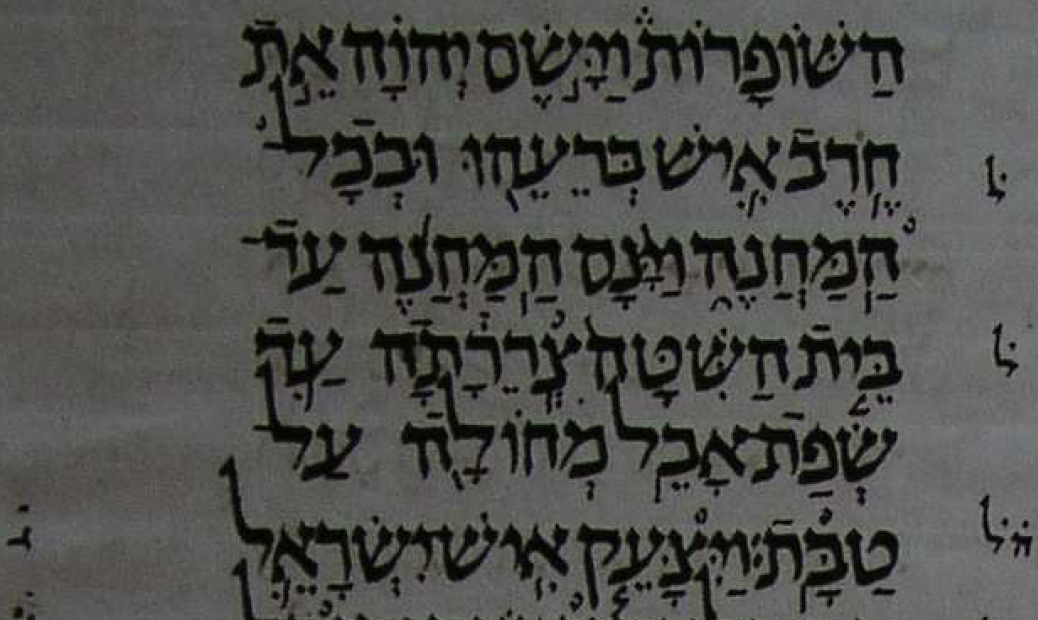 הַשּׁוֹפָרוֹת֒ וַיָּ֣שֶׂם יְהוָ֗ה אֵ֣ת
חֶ֥רֶב אִ֛ישׁ בְּרֵעֵ֖הוּ וּבְכָל־ לׄ
הַֽמַּחֲנֶ֑ה וַיָּ֨נׇס הַֽמַּחֲנֶ֜ה עַד־
בֵּ֤ית הַשִּׁטָּה֙ צְֽרֵרָ֔תָה עַ֛ד לׄ
שְׂפַת אָבֵ֥ל מְחוֹלָ֖ה עַל־
טַבָּֽת׃ וַיִּצָּעֵ֧ק אִֽישׁ יִשְׂרָאֵ֛ל